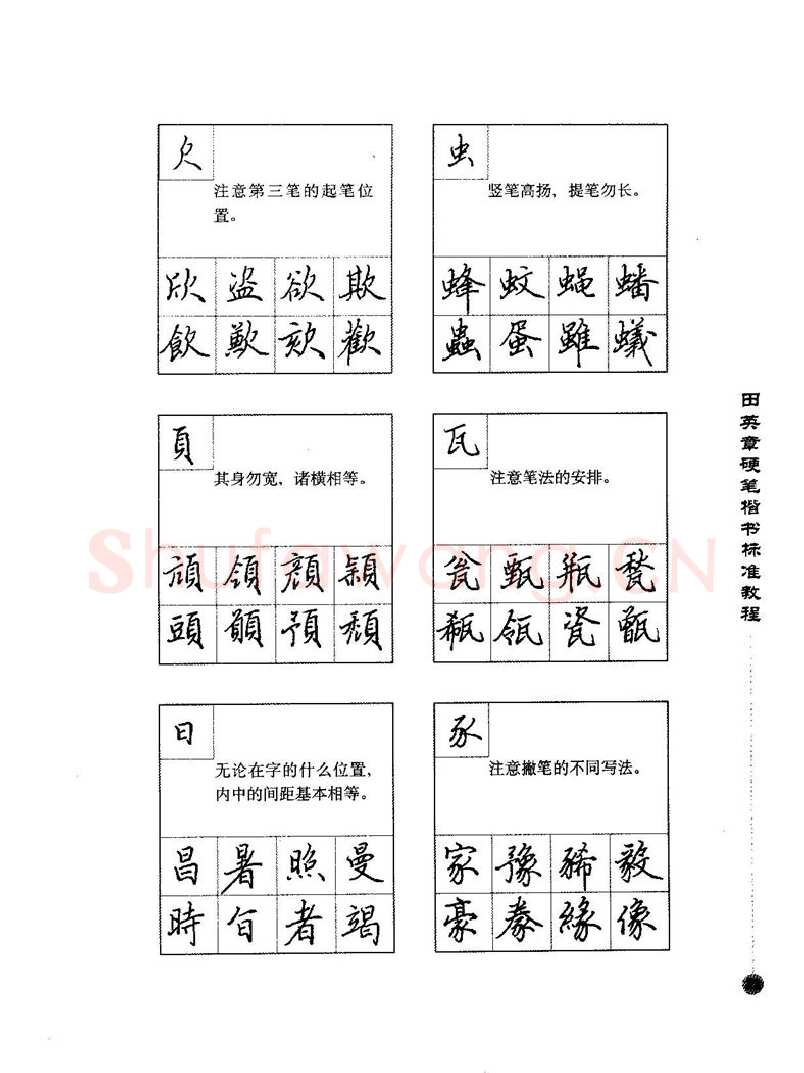 欠
注意第三笔的起笔位
置。
欣 盗 欲 欺
飲 歉 欬 歡
虫
竖笔高扬，提笔勿长。
蜂 蚊 蝇 蟠
蟲 蛋 雖 蟻
頁
其身勿宽，诸横相等。
頑 領 顔 潁
頭 顫 預 頹
瓦
注意笔法的安排。
瓮 甄 瓶 甃
瓻 瓴 瓷 甑
日
无论在字的什么位置，
内中的间距基本相等。
昌 暑 照 曼
時 旨 者 竭
豕
注意撇笔的不同写法。
家 豫 豨 毅
豪 豢 緣 像
田英章硬笔楷书标准教程
Shufawang.CN